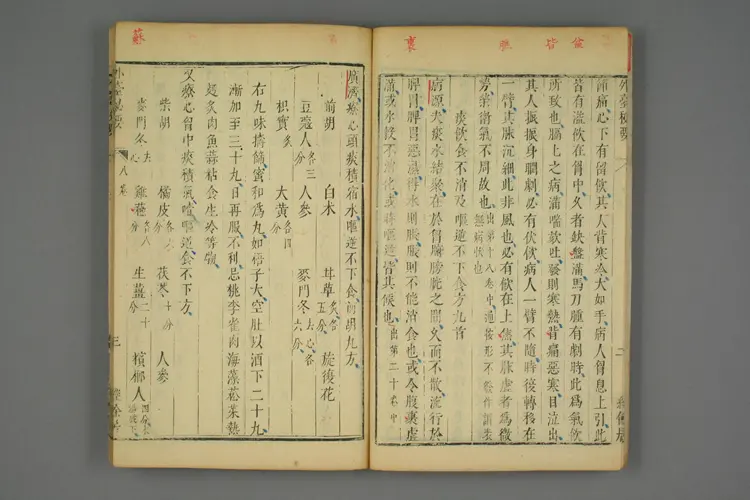 外臺秘要
肺痛心下有留飲其人背寒冷大如手病人胷息上引此
皆有溢飲在胷中久者缺盤滿馬刀腫有劇時此爲氣飲
所致也膈上之病滿喘欬吐發則寒熱背痛惡寒目泣出
其人振振身瞤劇必有伏飲病人一臂不隨時復轉移在
一臂其脉沉細此非風也必有飲在上焦其脉虛者爲微
勞榮衛氣不周故也出第十八卷中
痰飲食不消及嘔逆不下食方九首
病源夫痰水結聚在於胷膈膀胱之間久而不散流行於
脾胃脾胃惡濕得水則脹脹則不能消食也或令腹裏虛
滿或水飲不消化或時嘔逆皆其候也出第二十卷中
廣濟療心頭痰積宿水嘔逆不下食前胡丸方
前胡 白术 甘草炙各五分 旋復花
豆蔻人各三分 人參 麥門冬去心各六分
枳實炙 大黃各四分
右九味擣篩蜜和爲丸如梧子大空肚以酒下二十九
漸加至三十九日再服不利忌桃李雀肉海藻菘菜熱
麵炙肉魚蒜粘食生冷等物
又療心胷中痰積氣噎嘔逆食不下方
柴胡 橘皮各分 茯苓十分 人參
麥門冬去心 雞蘇各八分 生薑二十分 檳榔人
外臺秘要
八卷
三
裏
脈
皆
蘇